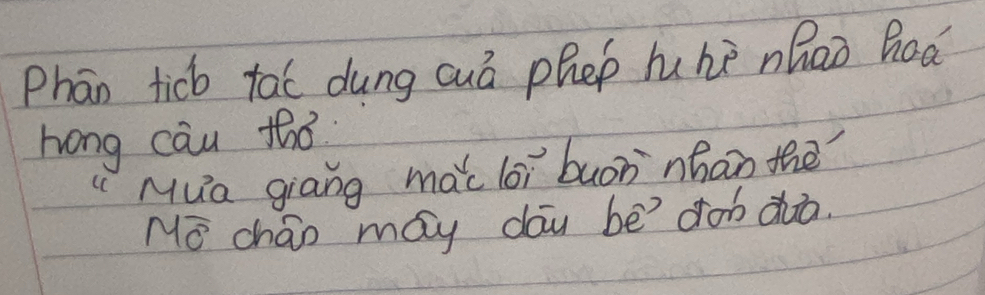 Phân tích tác dụng của phép tu từ nhân hoá
trong câu thơ:
"Mưa giăng mắc lối buồn nhân thế
Mờ chân mây dâu bể đón đưa.